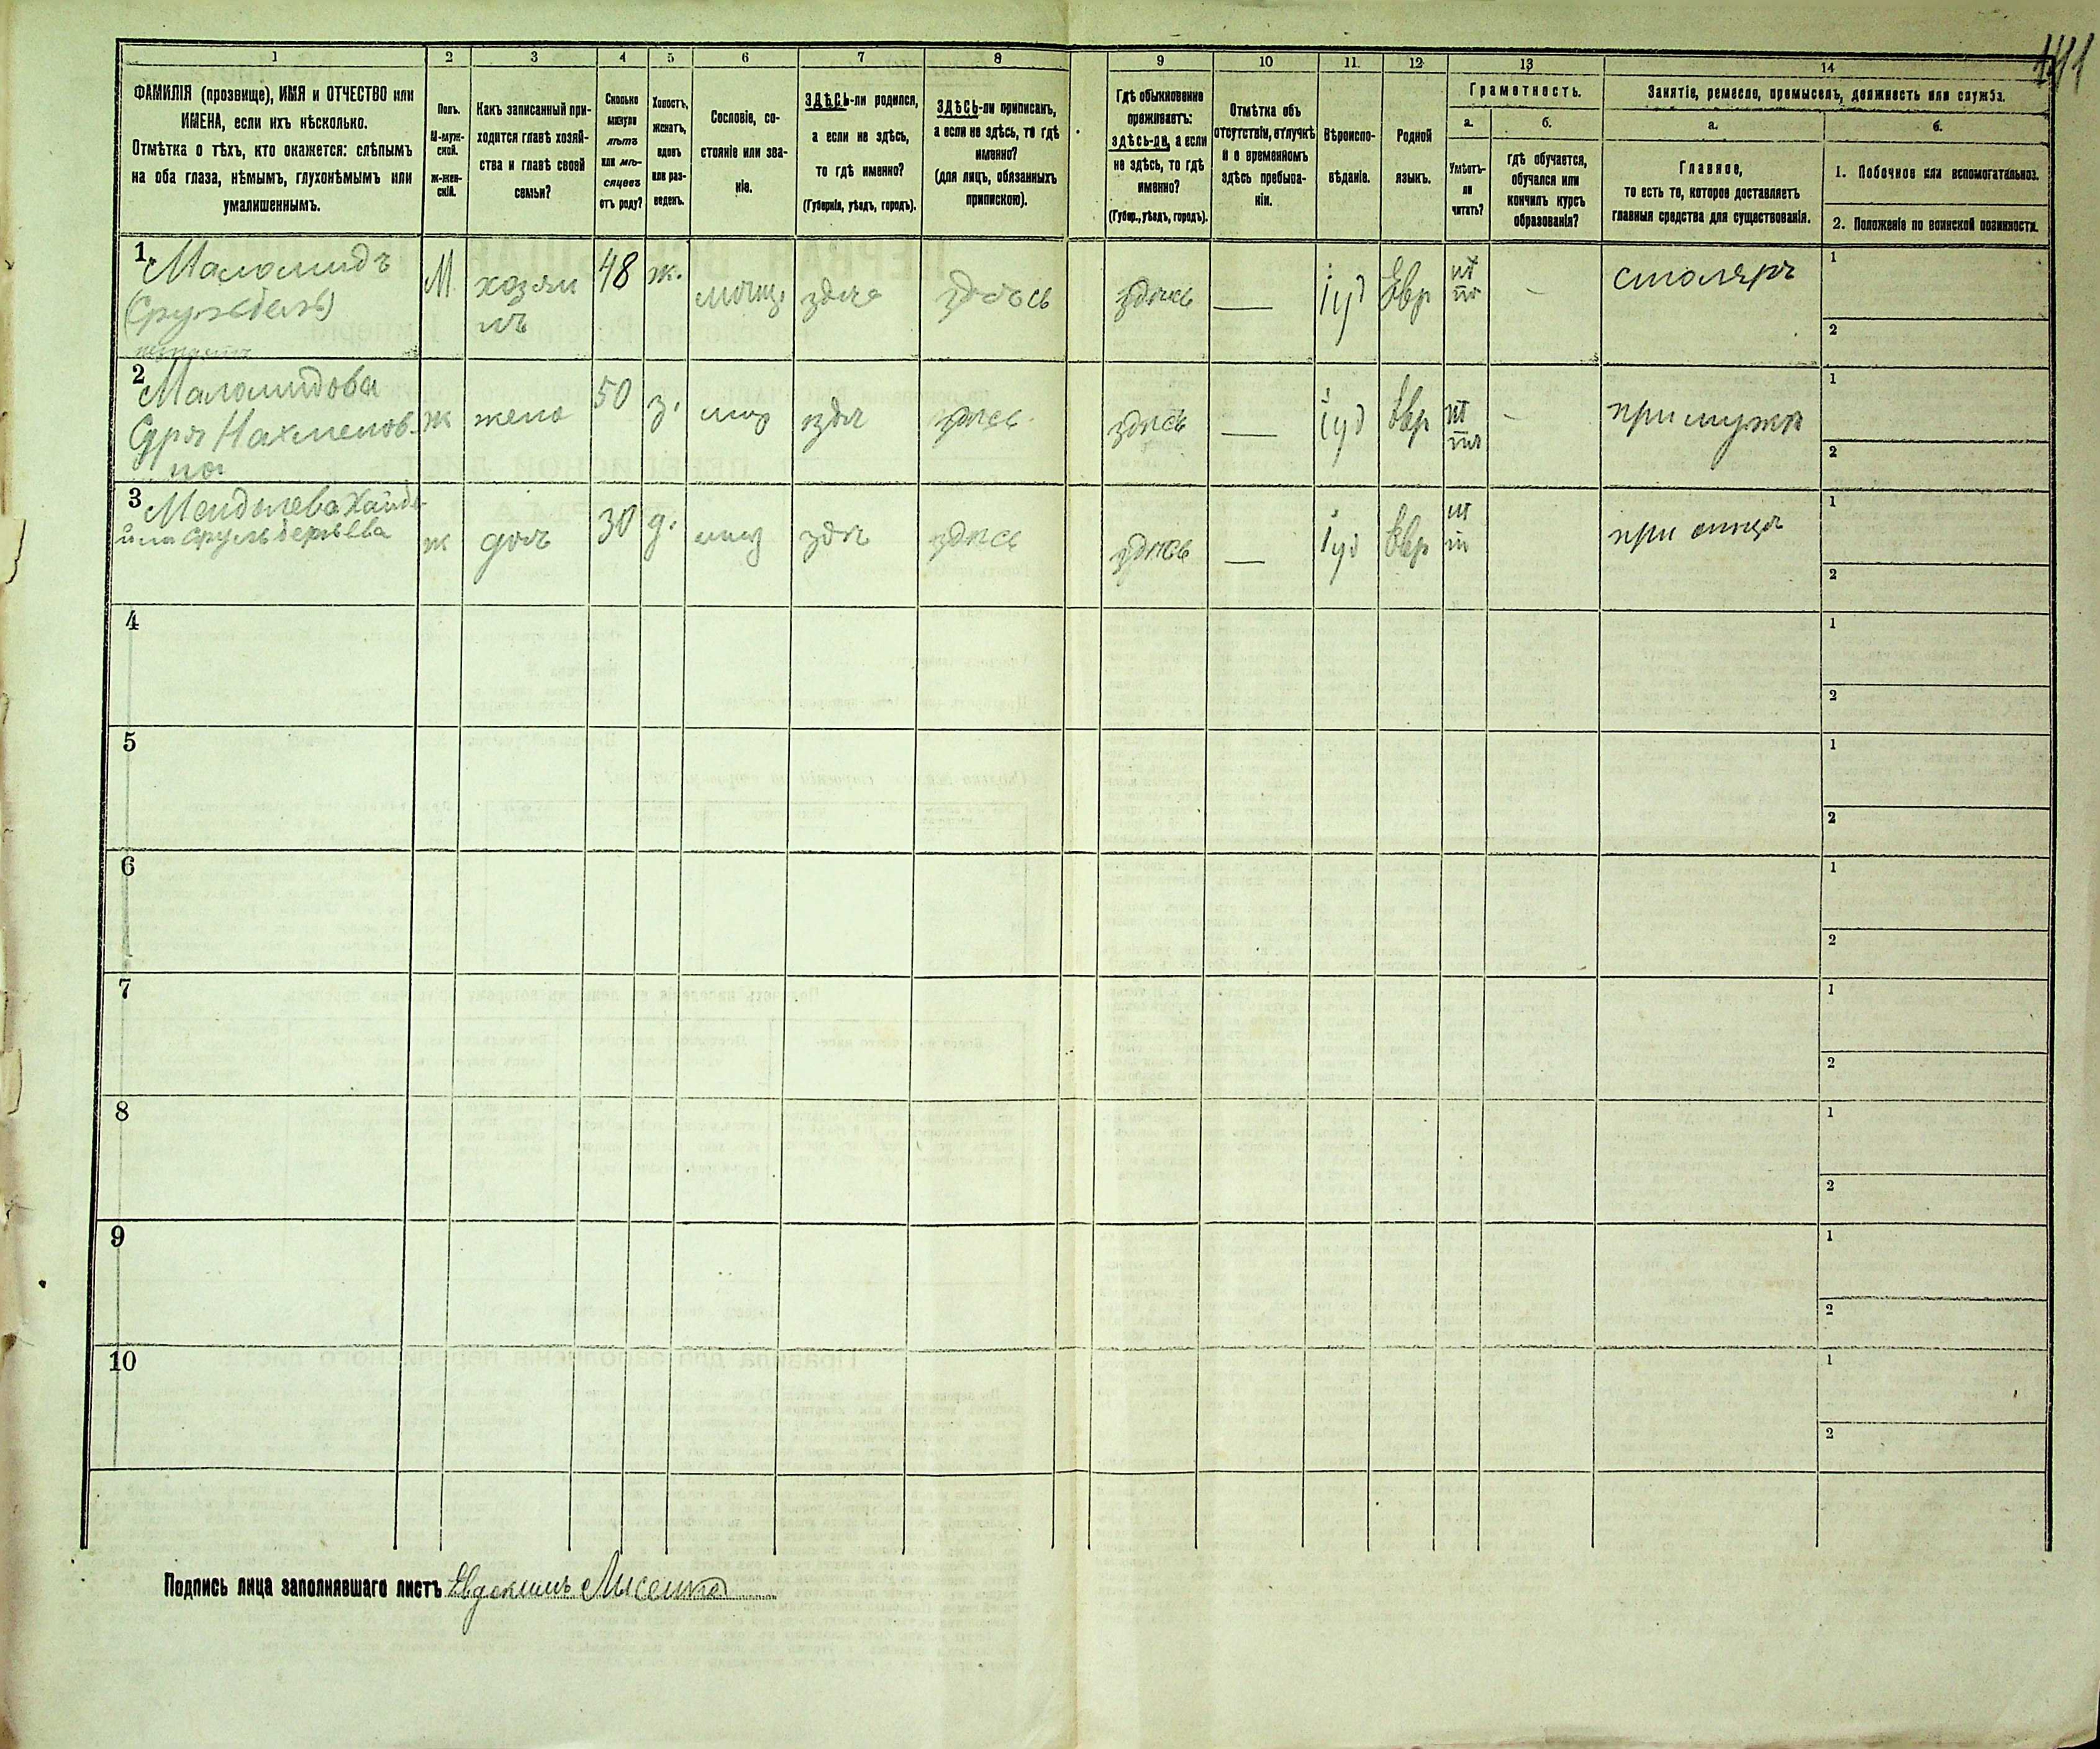 1 2 3 4 5 6 7 8 9 10 11 12 13 14
ФАМИЛІЯ (прозвище), ИМЯ и ОТЧЕСТВО или
ИМЕНА, если ихъ нѣсколько.
Отмѣтка о тѣхъ, кто окажется: слѣпымъ
на оба глаза, нѣмымъ, глухонѣмымъ или
умалишеннымъ.
Полъ.
М-муж-
ской.
Ж-жен-
скій.
Какъ записанный при-
ходится главѣ хозяй-
ства и главѣ своей
семьи?
Сколько
минуло
лѣтъ
или мѣ-
сяцевъ
отъ роду?
Холостъ,
женатъ,
вдовъ
или раз-
веденъ.
Сословіе, со-
стояніе или зва-
ніе.
ЗДѢСЬ-ли родился,
а если не здѣсь,
то гдѣ именно?
(Губернія, уѣздъ, городъ).
ЗДѢСЬ-ли приписанъ,
а если не здѣсь, то гдѣ
именно?
(для лицъ, обязанныхъ
припискою).
Гдѣ обыкновенно
проживаетъ:
здѣсь-ли, а если
не здѣсь, то гдѣ
именно?
(Губер., уѣздъ, городъ).
Отмѣтка объ
отсутствіи, отлучкѣ
и о временномъ
здѣсь пребыва-
ніи.
Вѣроиспо-
вѣданіе.
Родной
языкъ.
Грамотность.
а. б.
Умѣетъ-
ли
читать?
гдѣ обучается,
обучался или
кончилъ курсъ
образованія?
Занятіе, ремесло, промыселъ, должность или служба.
а. б.
Главное,
то есть то, которое доставляетъ
главныя средства для существованія.
1. Побочное или вспомогательное.
2. Положеніе по воинской повинности.
1 Маломидъ М хозяи 48 ж. здѣсь здѣсь — іуд Евр — столяръ 1
нъ
2
2 Маломидова ж жена 50 з. здѣсь здѣсь — іуд Евр — при мужѣ 1
Нахменов-
на 2
3 ж доч 30 д. здѣсь здѣсь — іуд Евр при отцѣ 1
2
4 1
2
5 1
2
6 1
2
7 1
2
8 1
2
9 1
2
10 1
2
Подпись лица заполнявшаго листъ Евдокимъ Лисенко